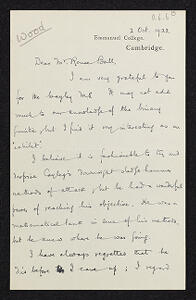 O.6.6
Wood
2 Oct. 1922
Emmanuel College,
Cambridge.
Dear Mr Rouse Ball,
I am very grateful to you
for the Cayley MS. It may not add
much to our knowledge of the binary
but I find it very interesting as an
'exhibit'.
I believe it is fashionable to try and
despise Cayley's damnedest sledge hammer
methods of attack but he had a wonderful
power of reaching his objective. He was a
mathematical tank in some of his methods,
but he knew where he was going.
I have always regretted that he
died before I came up; I regard